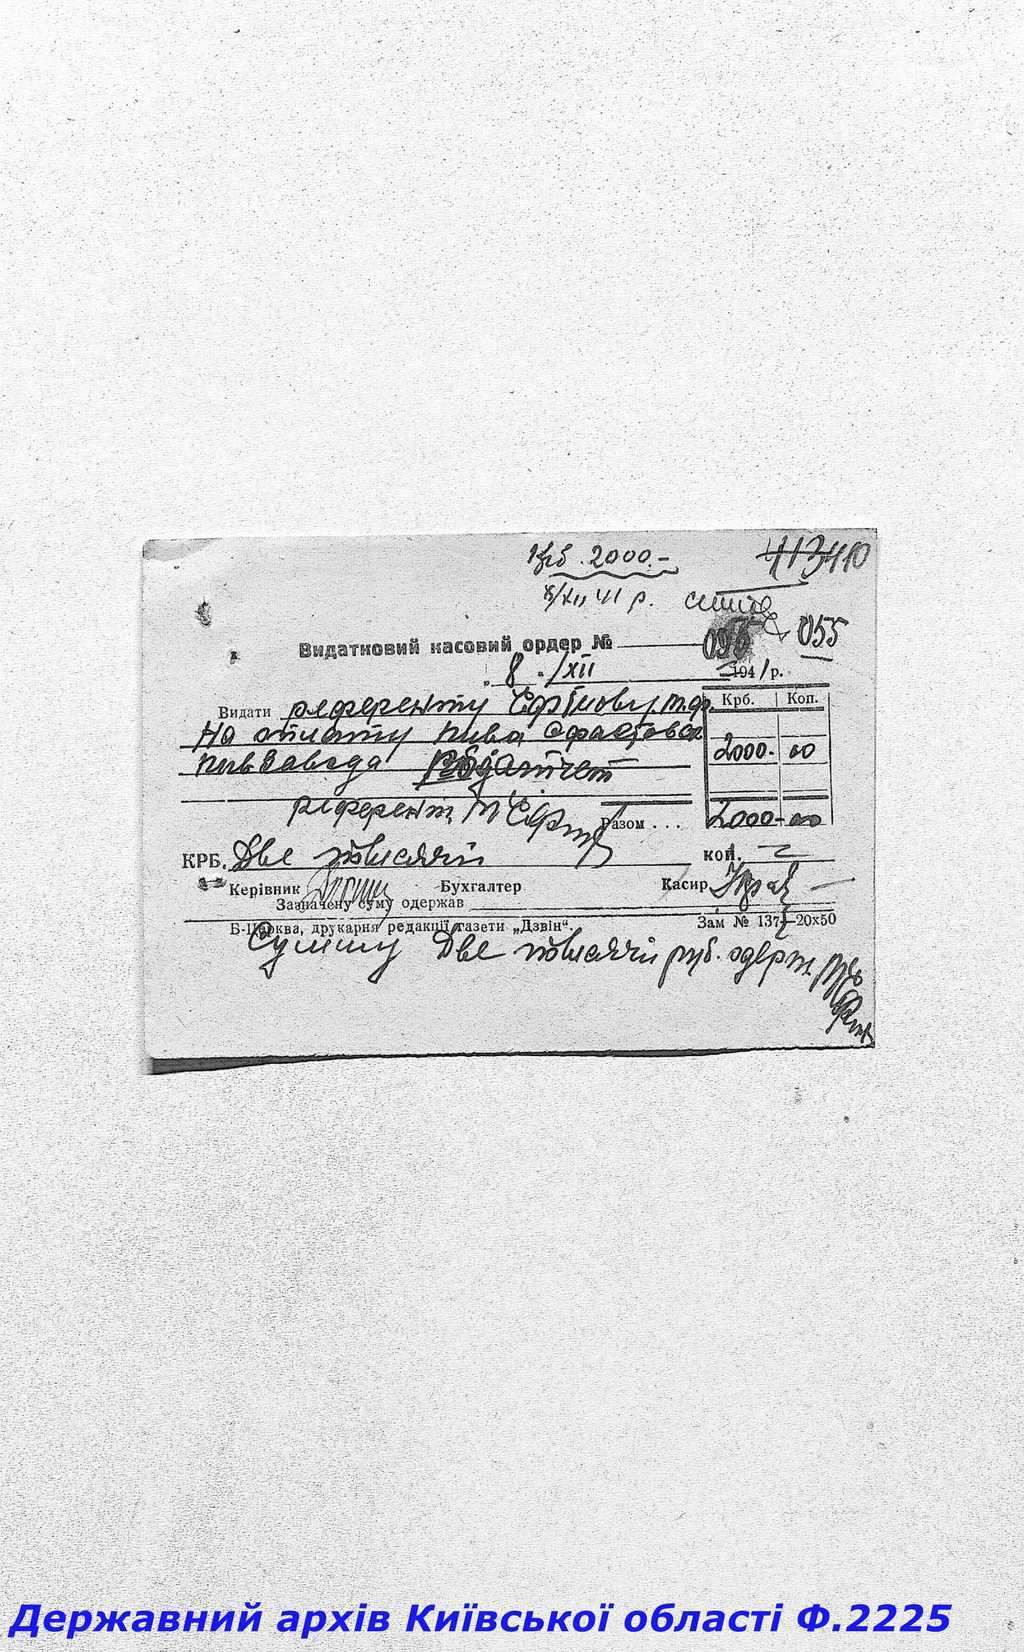 крб. 2000.-
113 110
8/XII 41 р.
055
Видатковий касовий ордер №
8 /XII 1941 р.
Видати референту Єфімову т.ф.
Крб. Коп.
На оплату пива Фастовск
пивзавода Подотчет
2000- 00
референт
Разом . . . 2000-00
КРБ. Две тысячи коп. —
Керівник Бухгалтер Касир
Зазначену суму одержав
Б-Церква, друкарня редакції газети „Дзвін“. Зам № 137—20х50
Сумму Две тысячи руб. одерж.
Державний архів Київської області Ф.2225